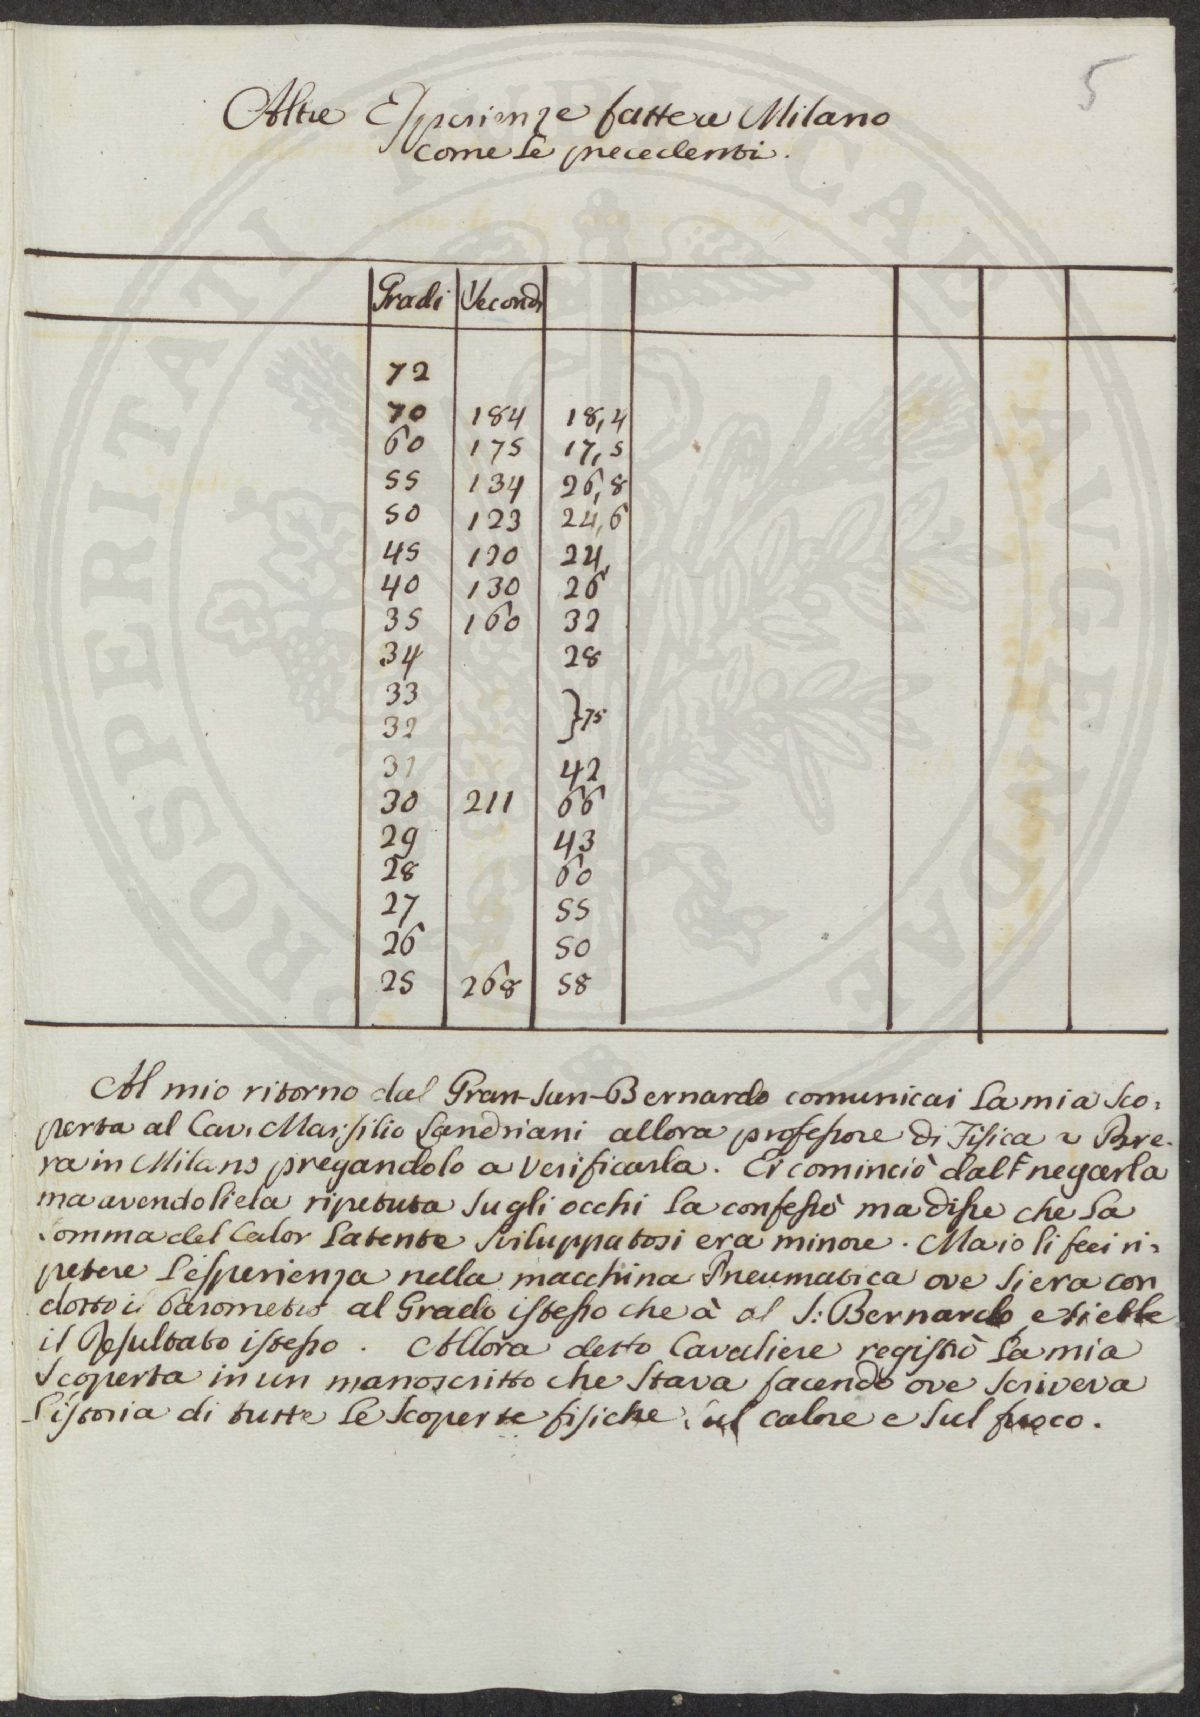 5
Altre Esperienze fatte a Milano
come le precedenti.
Gradi Secondi
72
70 184 18,4
60 175 17,5
55 134 26,8
50 123 24,6
45 120 24,
40 130 26
35 160 32
34 28
33
} 75
32
31 42
30 211 66
29 43
28 60
27 55
26 50
25 268 58
Al mio ritorno dal Gran-San-Bernardo comunicai la mia sco=
perta al Cav. Marsilio Landriani allora professore di Fisica a Bre-
ra in Milano pregandolo a verificarla. Ei cominciò dal negarla
ma avendoliela ripetuta sugli occhi la confessò ma disse chè la
somma del Calor latente sviluppatosi era minore. Ma io li feci ri=
petere l'esperienza nella macchina Pneumatica ove si era con
dotto il Barometro al Grado istesso che à al S: Bernardo, e si ebbe
il Resultato istesso. Allora detto Cavaliere registrò la mia
scoperta in un manoscritto che stava facendo ove scriveva
l'istoria di tutte le scoperte fisiche sul calore e sul fuoco.
PROSPERITATI PUBLICAE AUGENDAE